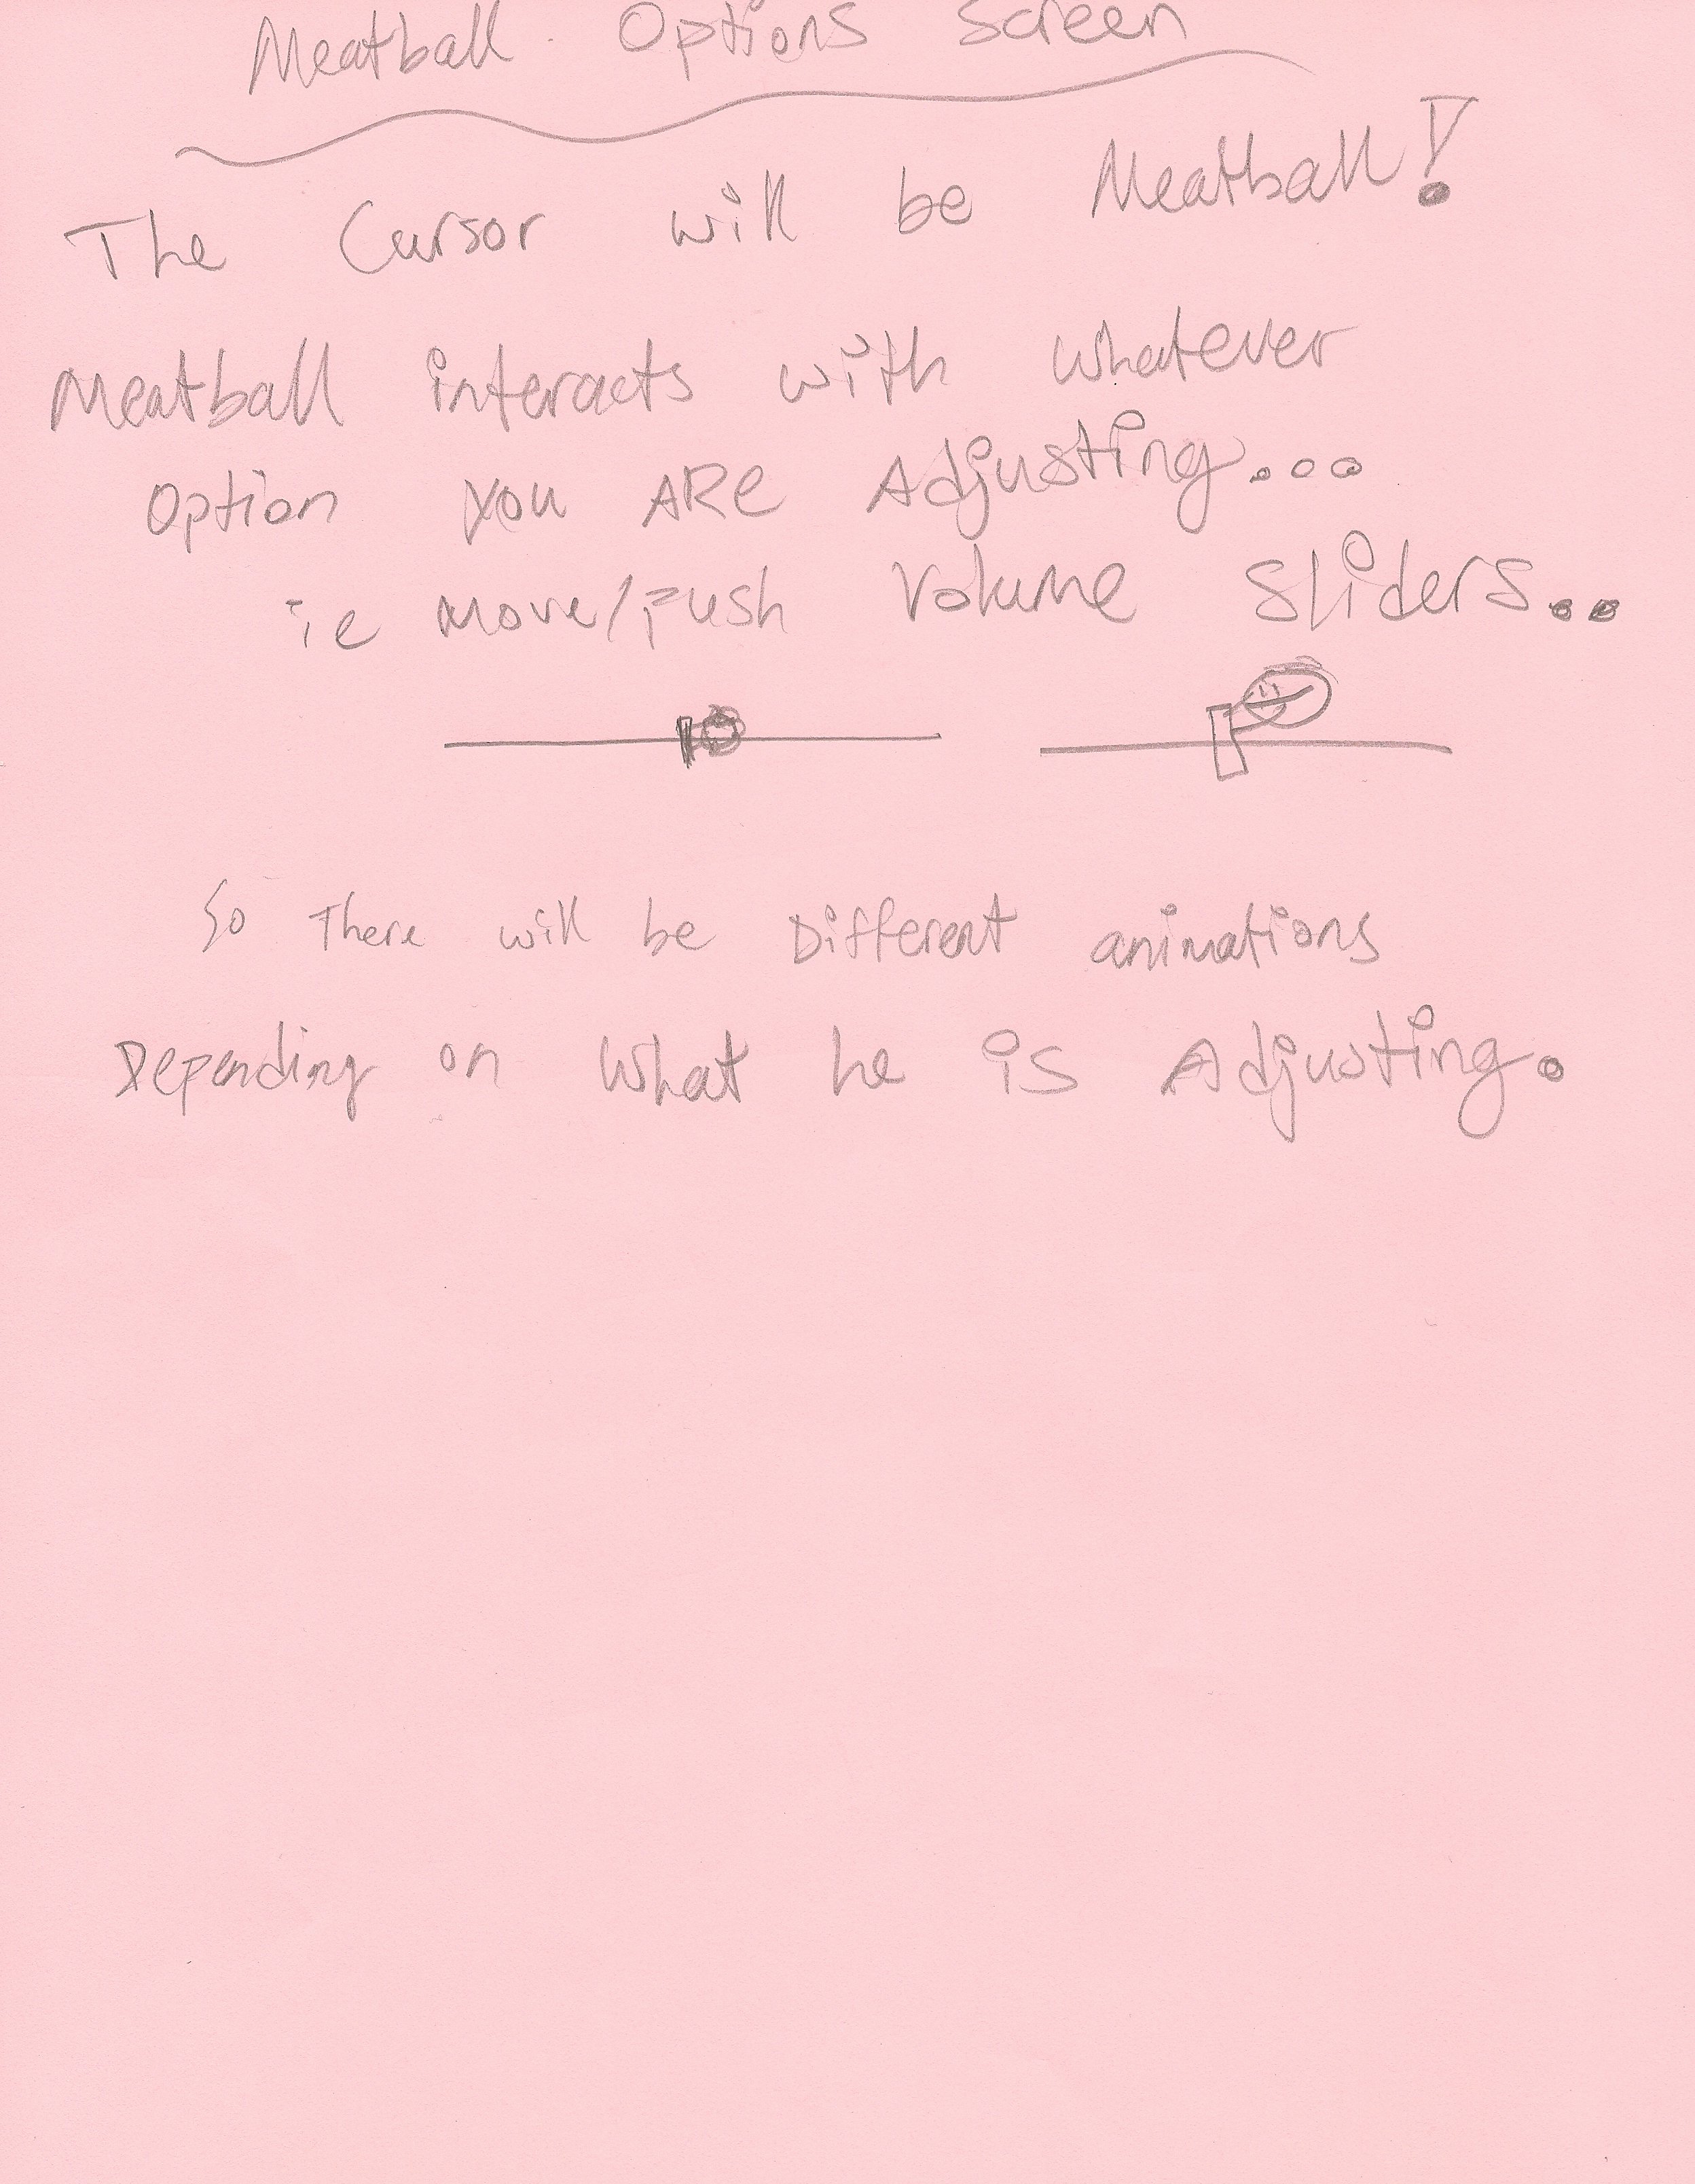 Meatball Options Screen
The Cursor will be Meatball!
Meatball interacts with whatever
Option you ARe Adjusting...
ie move/push volume Sliders..
So There will be Different animations
Depending on what he is Adjusting.